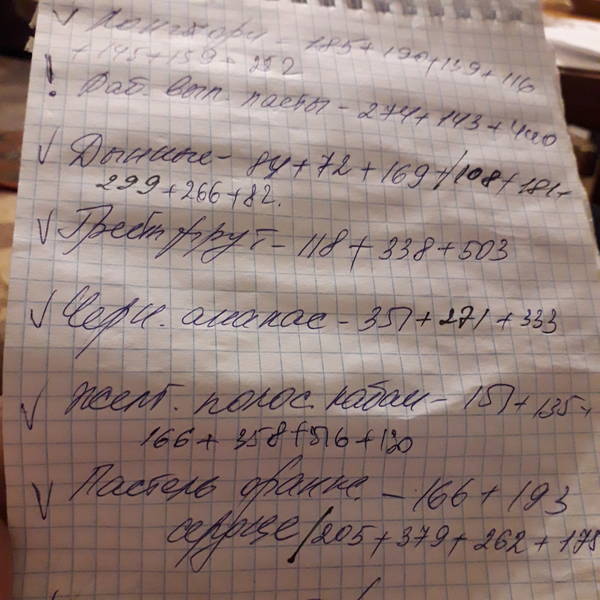 √ - 185+190/139+116
+145+159-
! Раб. вып. пасты - 274+143+400
√ Дынные - 84+72+169+/108+181+
299+266+82.
√ Грестфрут - 118+338+503
√ Черн. ананас - 351+271+333
√ Желт. полос. кабан - 151+135+
166+358+516+130
√ Пастель оранж. - 166+193
сердце/205+379+262+175